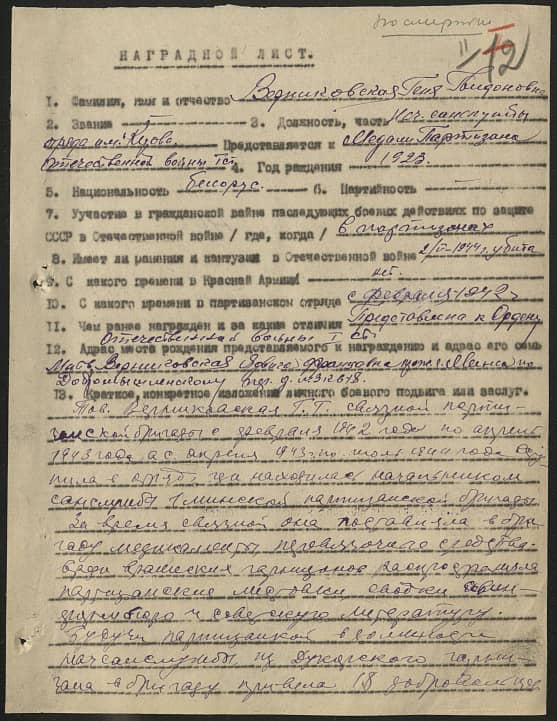 посмертно
II
12
НАГРАДНОЙ ЛИСТ.
1. Фамилия, имя и отчество Верниковская Геня
2. Звание — 3. Должность, часть Нач. санслужбы
Представляется к Медали Партизана
Отечественной войны I ст 4. Год рождения 1923
5. Национальность белорус. 6. Партийность —
7. Участие в гражданской войне паследующих боевых действиях по защите
СССР в Отечественной войне / где, когда / в партизанах
8. Имеет ли ранения и кантузии в Отечественной войне 1944 г. убита
9. С какого времени в Красной Армии нет.
10. С какого времени в партизанском отряде с февраля 1942 г
11. Чем ранее награжден и за какие отличия Представлена к Ордену
Отечественной войны I ст
12. Адрес места рождения представляемого к награждению и адрес его семьи
Мать Верниковская гор. Минск по
Добромысленскому пер. д. №
13. Краткое, конкретное изложение личного боевого подвига или заслуг.
Тов. Верниковская Г. Г. связной парти-
занской бригады с февраля 1942 года по апрель
1943 года а с апреля 1943 г. по июль 1944 года всту-
пила в отряд где находилась начальником
санслужбы 1 минской партизанской бригады
За время связной она поставляла в бри-
гаду медикаменты перевязочного средства
среди вражеских гарнизонов распространяла
партизанские листовки сводки совин-
формбюро и советскую литературу.
Будучи партизанкой в должности
начсанслужбы из Дукорского гарни-
зона в бригаду привела 18 добровольцев